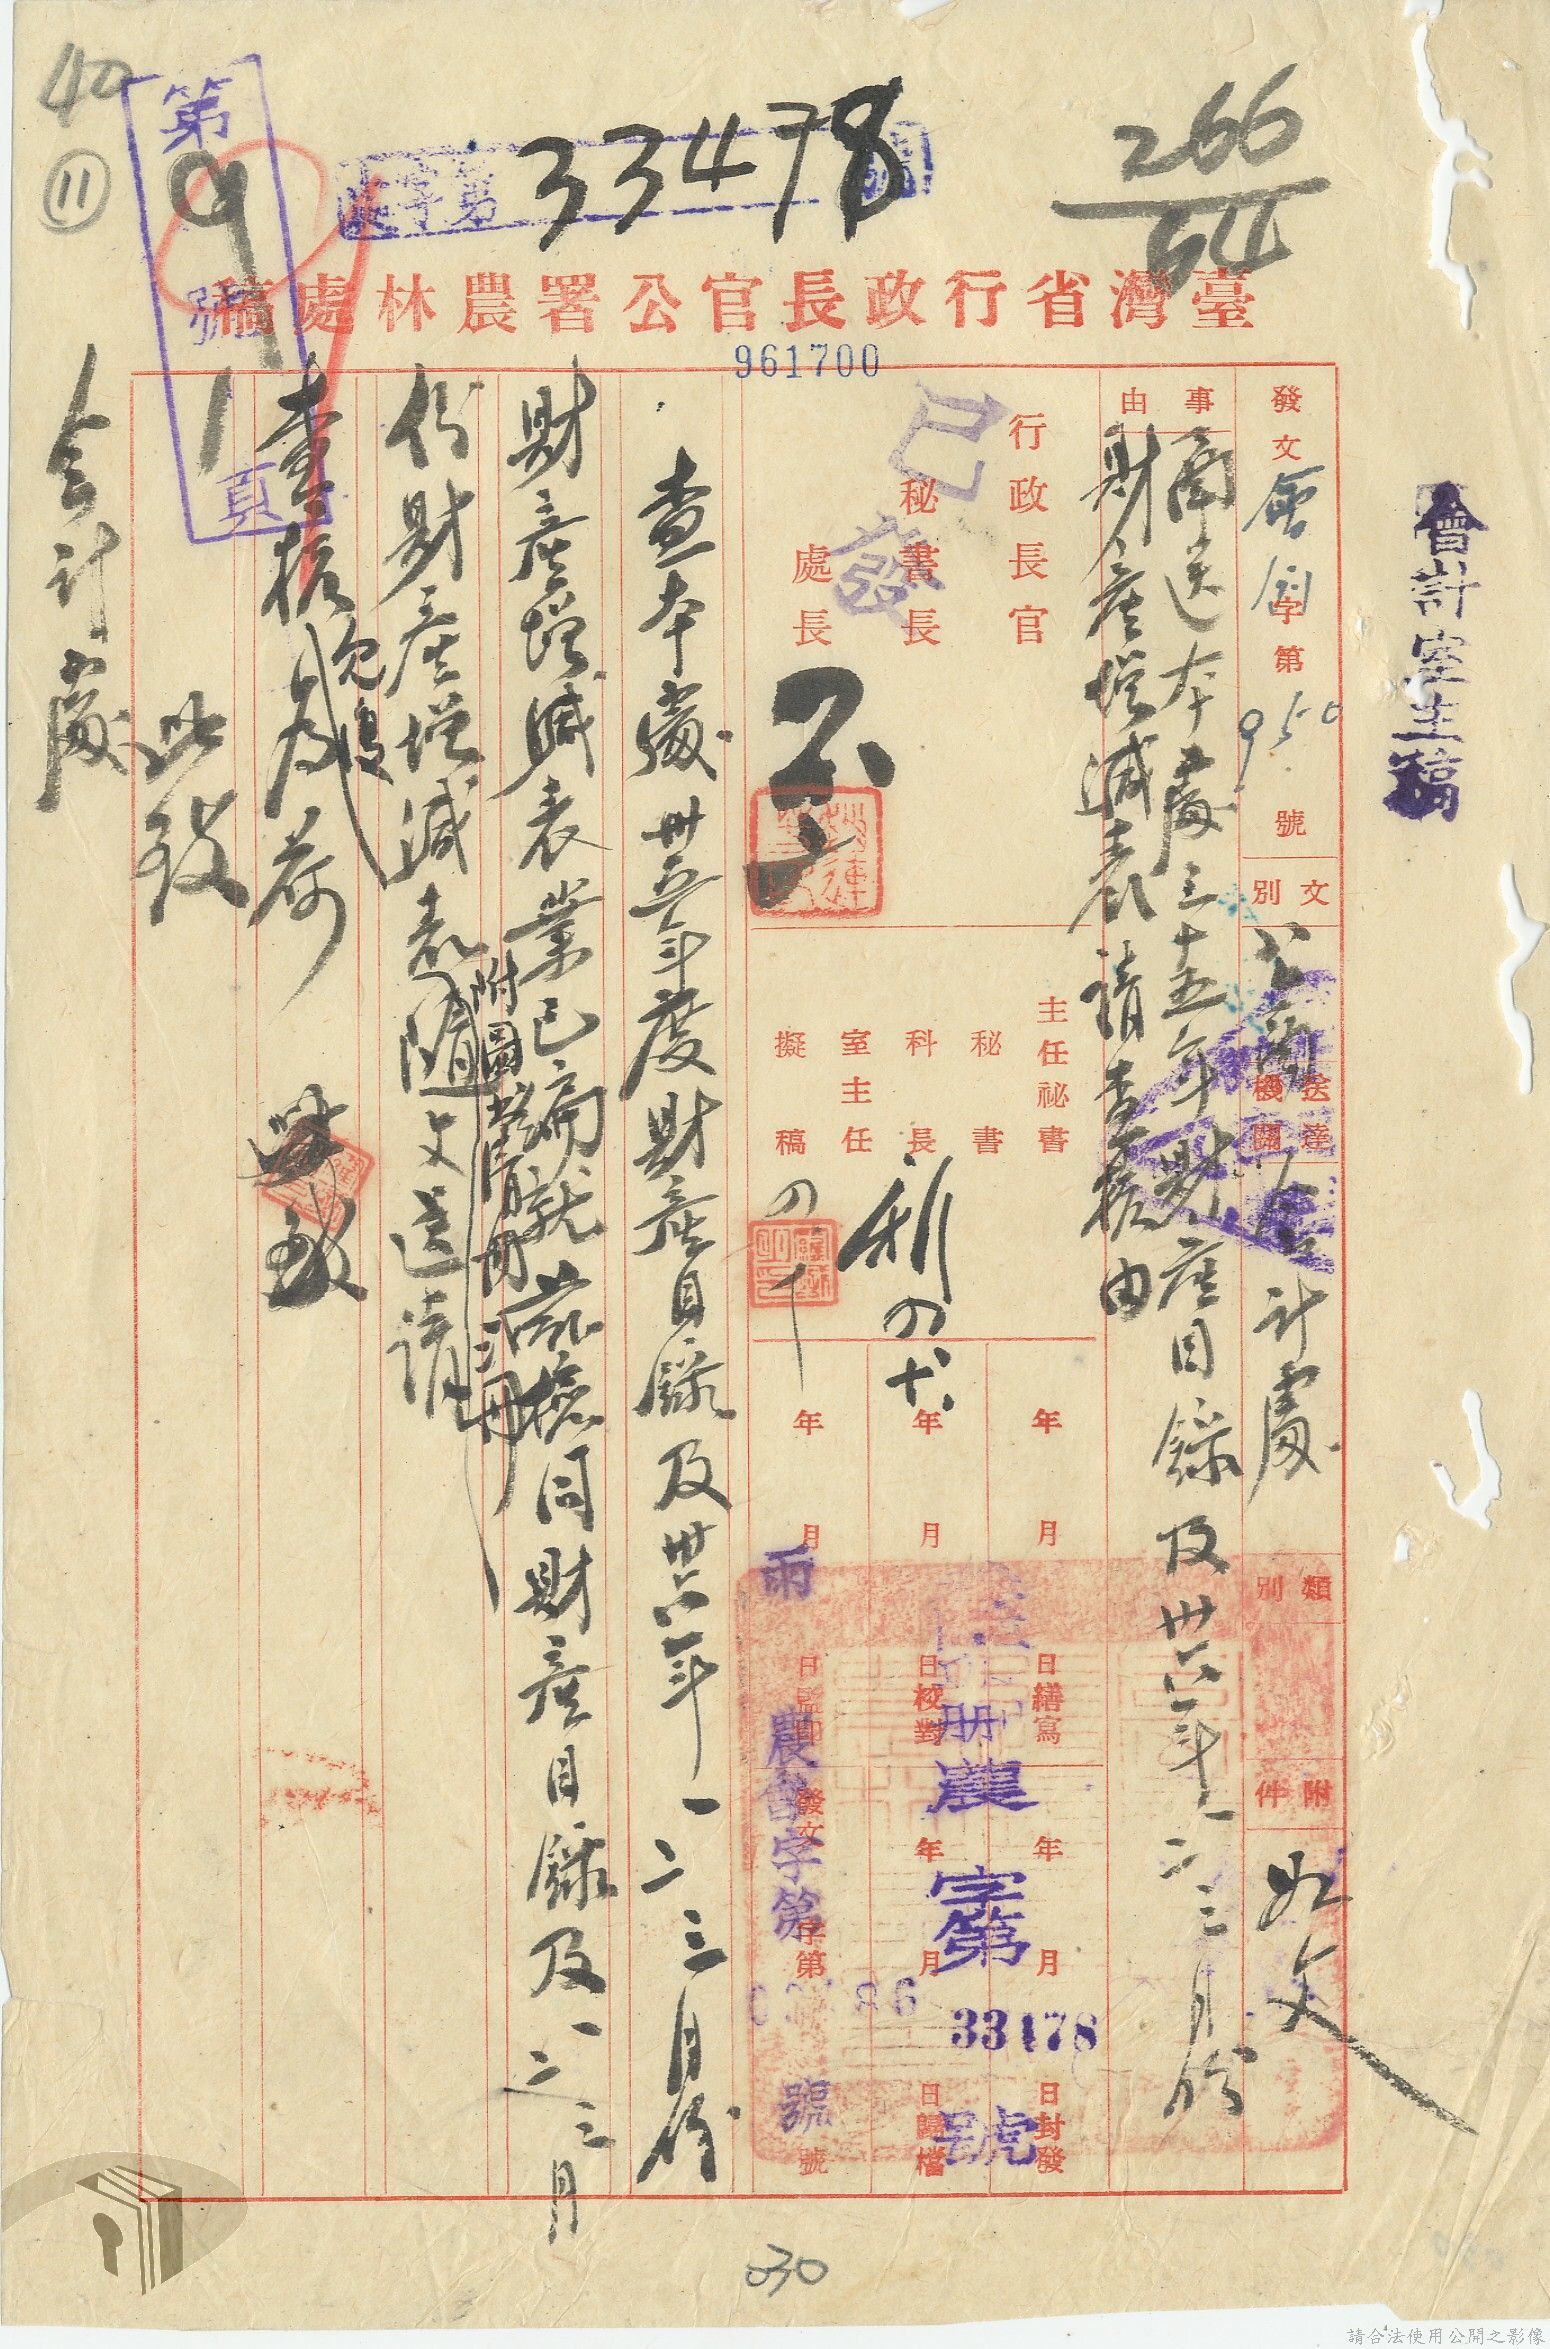 40
⑪
第
9
號
1
頁
字第33478號
266
54
臺灣省行政長官公署農林處稿
961700
會計室主稿
發文會創字第950號
文別 公函
送達機關 會計處
類別
附件 如文
事由
函送本處三十五年財產目錄及卅六年一二三月份
財產增減表請查核由
行政長官
秘書長
處長
已發
主任祕書
秘書
科長
室主任
擬稿
年 月 日繕寫
年 月 日校對
年 月 日監印
年 月 日封發
年 月 日歸檔
發文 字第 號
農會字第 號
農字第33478號
查本處卅五年度財產目錄及卅六年一二三月份
財產增減表業已編就茲檢同財產目錄及一二三月
份財產增減表隨文送請
查核為荷
此致
會計處
030
請合法使用公開之影像